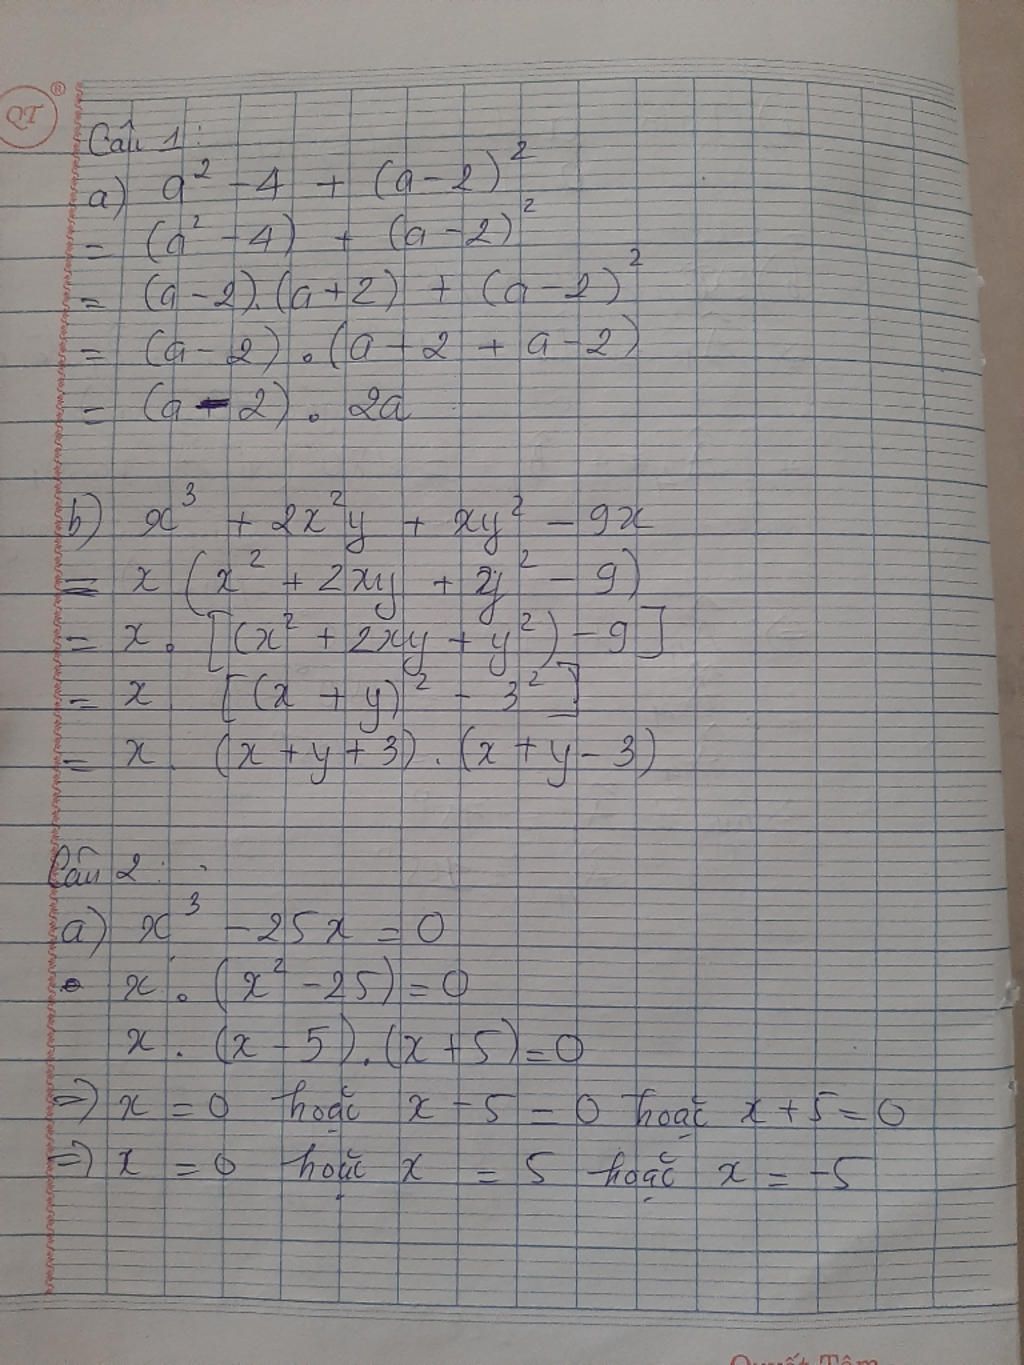 QT ®
Câu 1:
a) a² - 4 + (a - 2)²
= (a² - 4) + (a - 2)²
= (a - 2).(a + 2) + (a - 2)²
= (a - 2).(a + 2 + a - 2)
= (a - 2). 2a
b) x³ + 2x²y + xy² - 9x
= x (x² + 2xy + y² - 9)
= x. [(x² + 2xy + y²) - 9]
= x [(x + y)² - 3²]
= x. (x + y + 3).(x + y - 3)
Câu 2:
a) x³ - 25x = 0
x.(x² - 25) = 0
x.(x - 5).(x + 5) = 0
=> x = 0 hoặc x - 5 = 0 hoặc x + 5 = 0
=> x = 0 hoặc x = 5 hoặc x = -5
Quyết Tâm